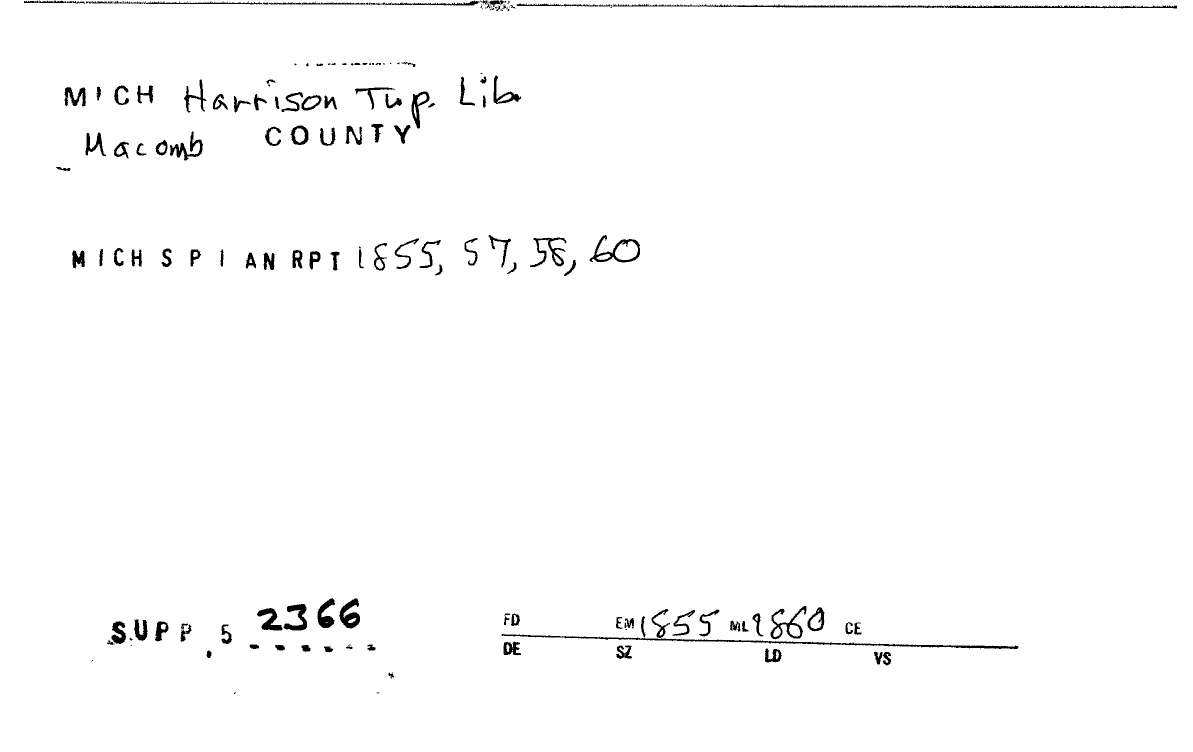 MICH Harrison Twp. Lib.
Macomb COUNTY
MICH S P I AN RPT 1855, 57, 58, 60
SUPP. 5 2366
FD EM 1855 ML 1860 CE
DE SZ LD VS